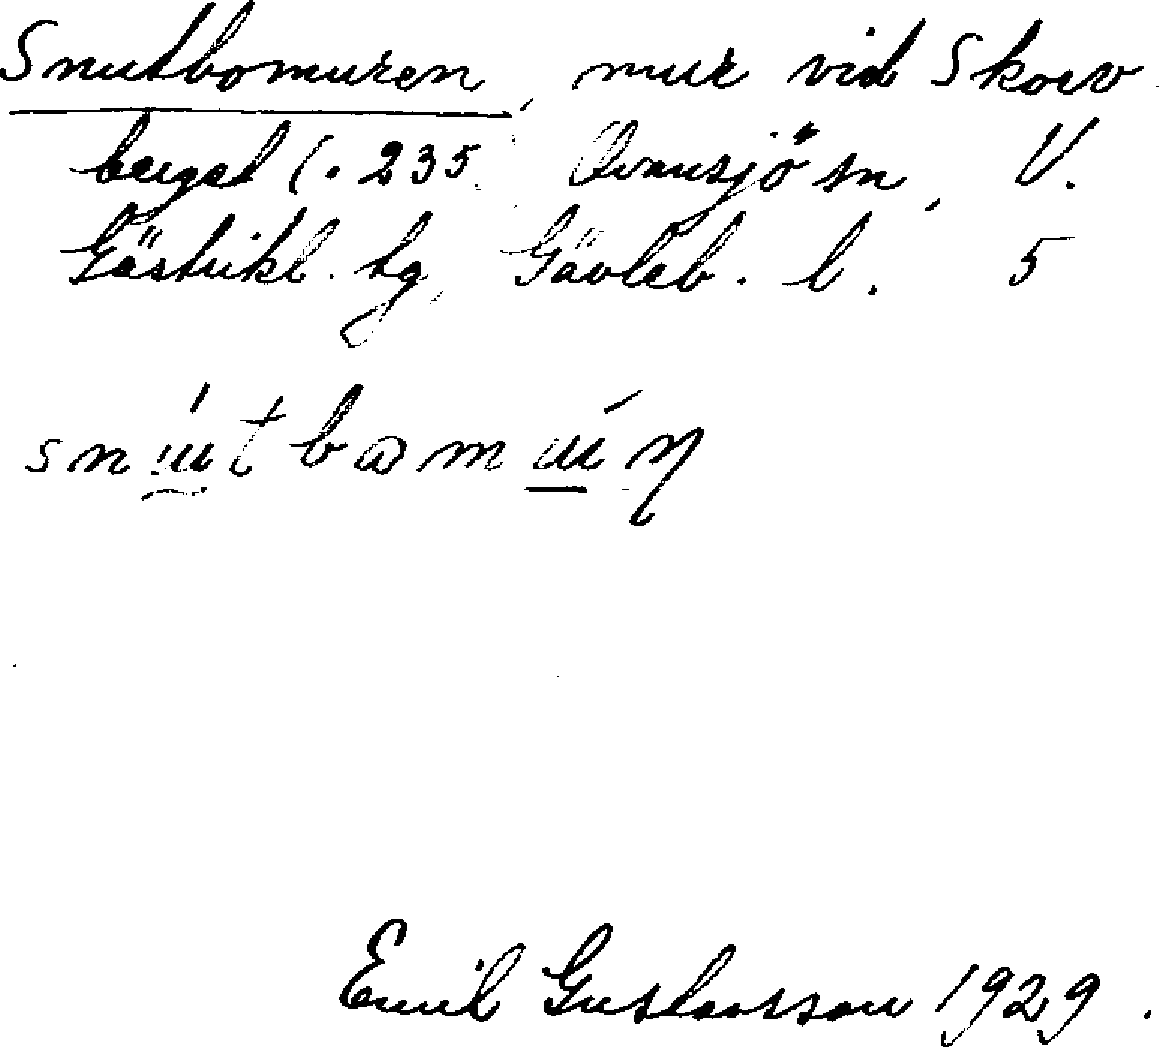 Snutbomuren, mur vid Skorv-
berget (. 235. Ovansjö sn, V.
Gästrikl. tg, Gävleb. l. 5
Emil Gustavsson 1929.